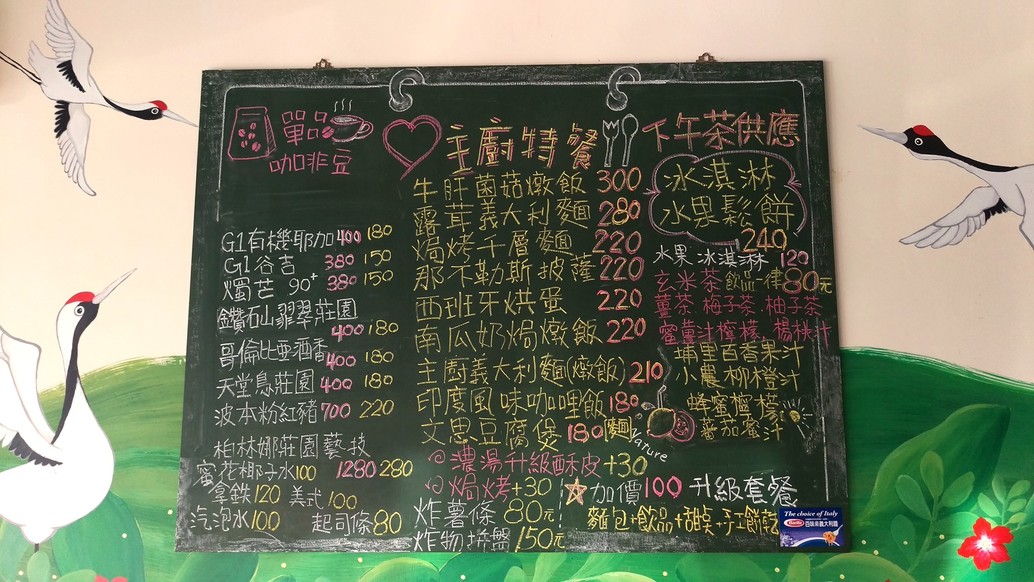 單品
咖啡豆
G1有機耶加 400 180
G1谷吉 380 150
燭芒 90+ 380 150
鑽石山翡翠莊園
400 180
哥倫比亞酒香 400 180
天堂鳥莊園 400 180
波本粉紅豬 700 220
柏林娜莊園藝技
1280 280
蜜花椰子水 100
拿鐵 120 美式 100
汽泡水 100 起司條 80
主廚特餐
牛肝菌菇燉飯 300
露茸義大利麵 280
焗烤千層麵 220
那不勒斯披薩 220
西班牙烘蛋 220
南瓜奶焗燉飯 220
主廚義大利麵(燉飯) 210
印度風味咖哩飯 180
文思豆腐煲 180 麵
濃湯升級酥皮+30
焗烤+30
炸薯條 80元
炸物拼盤 150元
下午茶供應
冰淇淋
水果鬆餅
240
水果冰淇淋 120
玄米茶 飲品一律80元
薑茶 梅子茶 柚子茶
蜜薑汁檸檬 楊桃汁
埔里百香果汁
小農柳橙汁
蜂蜜檸檬
蕃茄蜜汁
Nature
加價100 升級套餐
麵包+飲品+甜點+手工餅乾
The choice of Italy
Barilla
百味來義大利麵